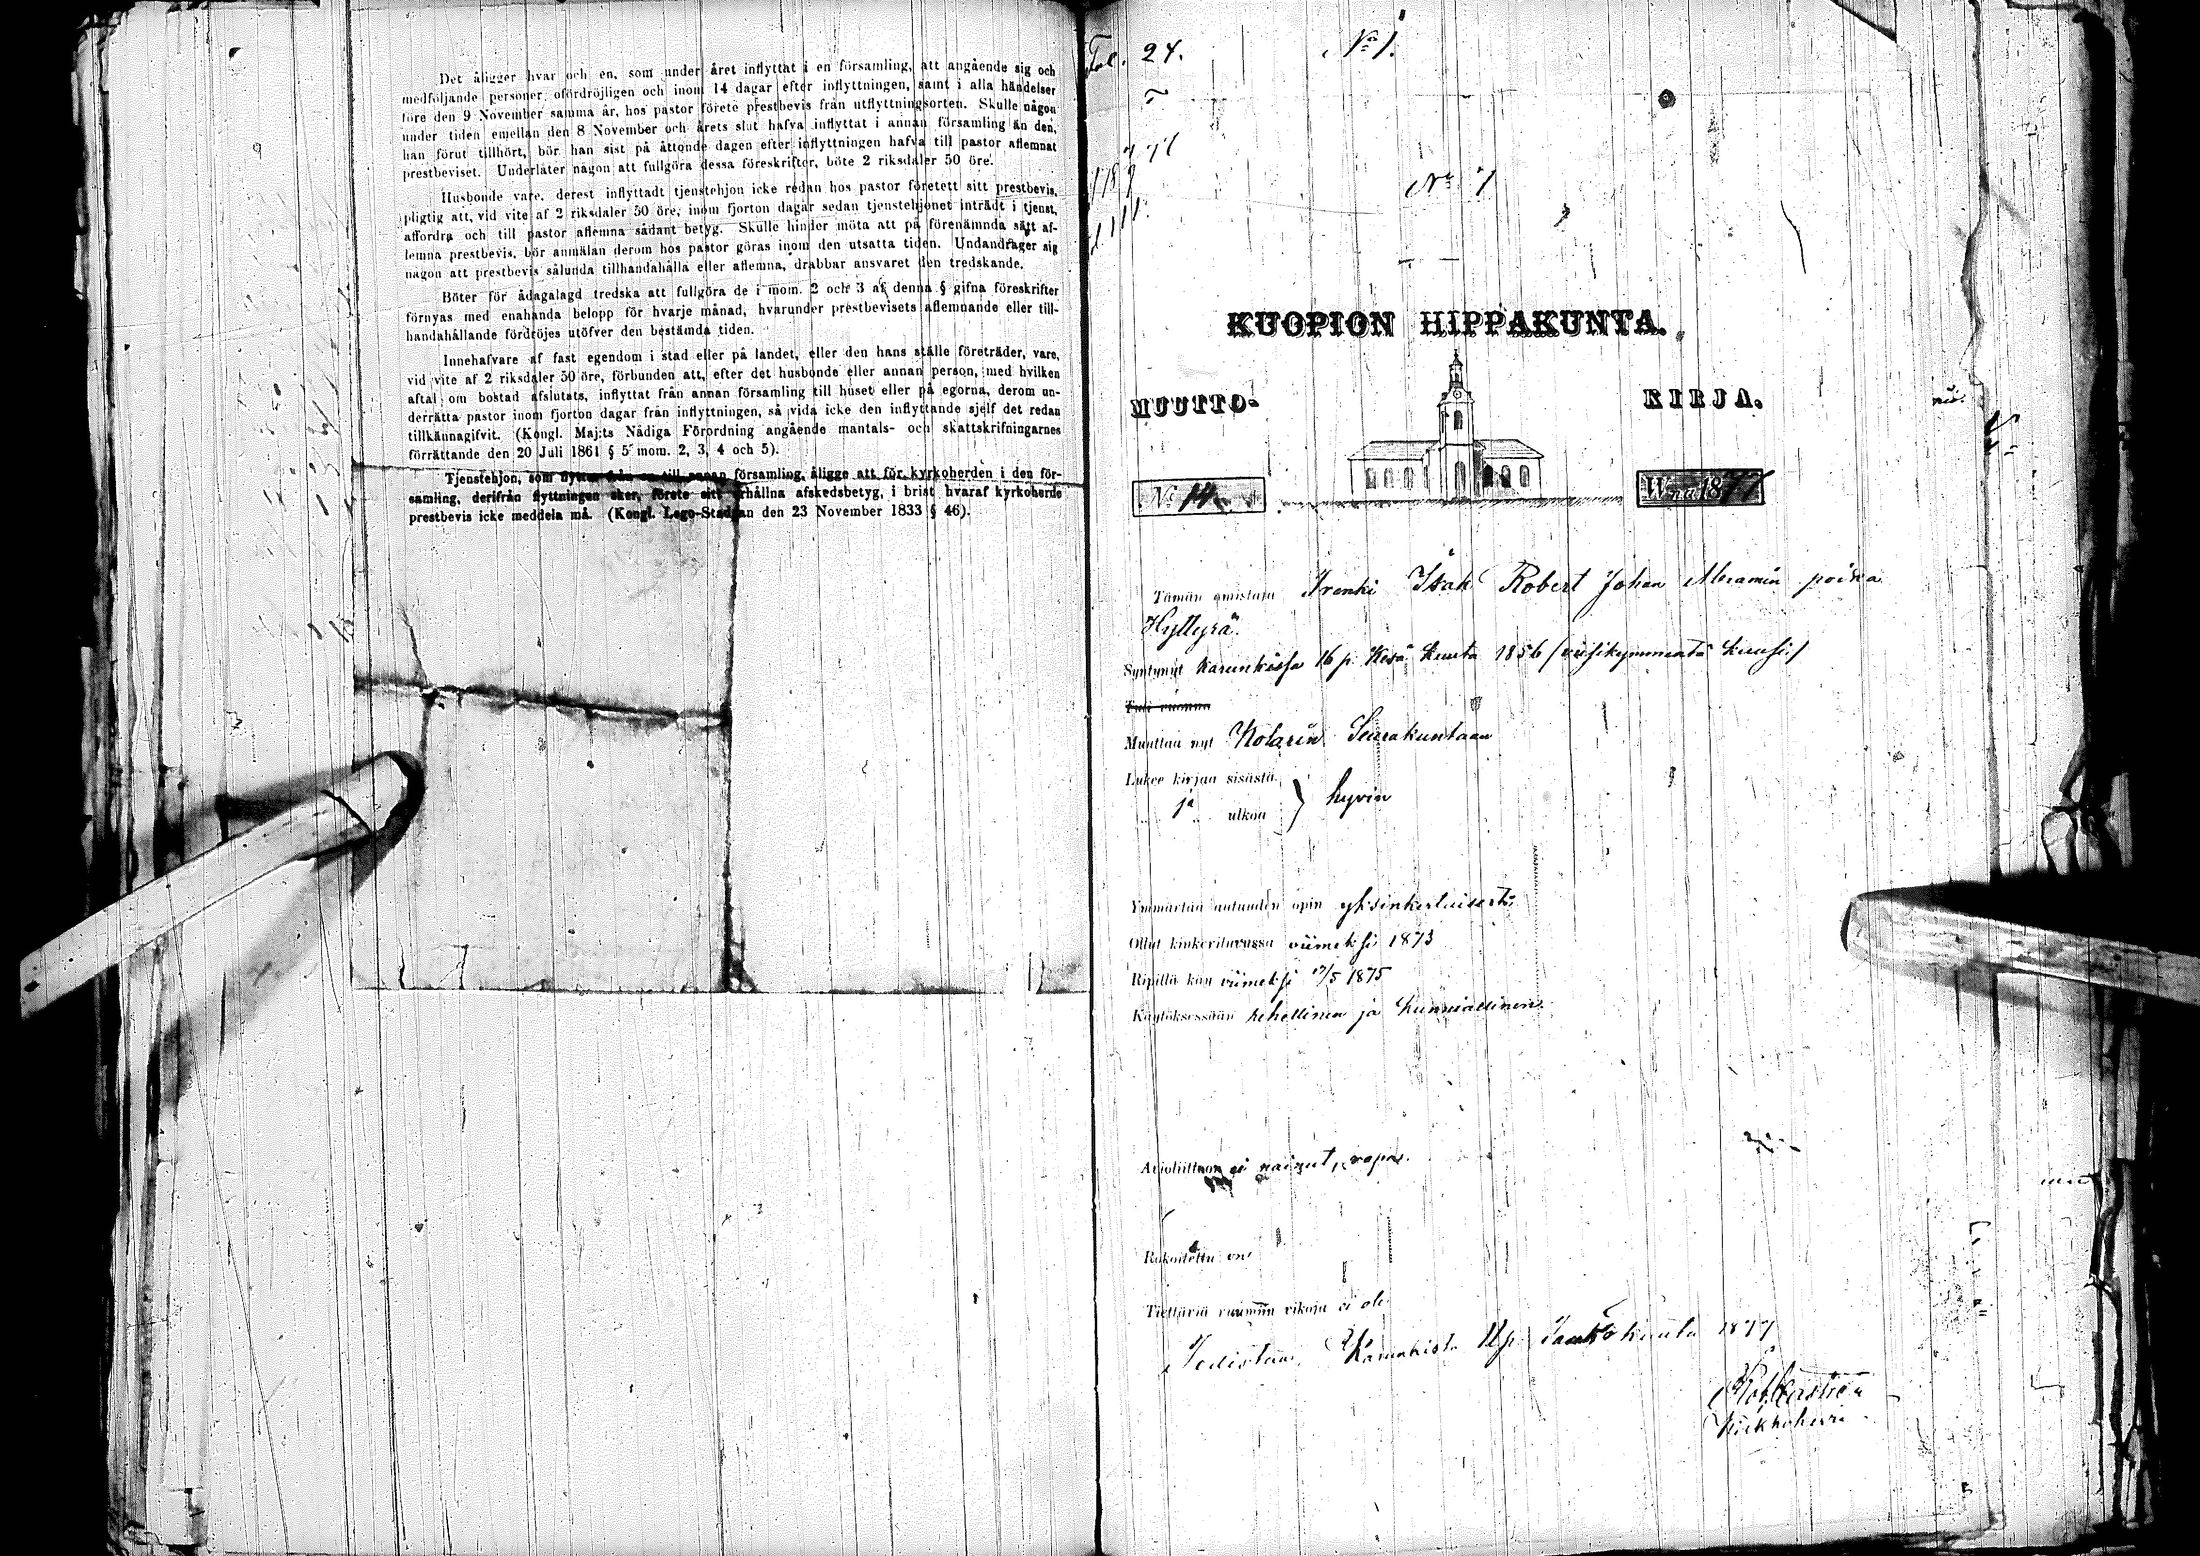 Det åligger hvar och en, som under året inflyttat i en församling, att angående sig och
medföljande personer ofördröjligen och inom 14 dagar efter inflyttningen, samt i alla händelser
före den 9 November samma år, hos pastor förete prestbevis från utflyttningsorten. Skulle någon
under tiden emellan den 8 November och årets slut hafva inflyttat i annan församling än den,
han förut tillhört, bör han sist på åttonde dagen efter inflyttningen hafva till pastor aflemnat
prestbeviset. Underlåter någon att fullgöra dessa föreskrifter, böte 2 riksdaler 50 öre.
Husbonde vare, derest inflyttadt tjenstehjon icke redan hos pastor företett sitt prestbevis,
pligtig att, vid vite af 2 riksdaler 50 öre, inom fjorton dagar sedan tjenstehjonet inträdt i tjenst,
affordra och till pastor aflemna sådant betyg. Skulle hinder möta att på förenämnda sätt af-
lemna prestbevis, bör anmälan derom hos pastor göras inom den utsatta tiden. Undandrager sig
någon att prestbevis sålunda tillhandahålla eller aflemna, drabbar ansvaret den tredskande.
Böter för ådagalagd tredska att fullgöra de i mom. 2 och 3 af denna § gifna föreskrifter
förnyas med enahanda belopp för hvarje månad, hvarunder prestbevisets aflemnande eller till-
handahållande fördröjes utöfver den bestämda tiden.
Innehafvare af fast egendom i stad eller på landet, eller den hans ställe företräder, vare,
vid vite af 2 riksdaler 50 öre, förbunden att, efter det husbonde eller annan person, med hvilken
aftal om bostad afslutats, inflyttat från annan församling till huset eller på egorna, derom un-
derrätta pastor inom fjorton dagar från inflyttningen, så vida icke den inflyttande sjelf det redan
tillkännagifvit. (Kongl. Maj:ts Nådiga Förordning angående mantals- och skattskrifningarnes
förrättande den 20 Juli 1861 § 5 mom. 2, 3, 4 och 5).
Tjenstehjon, som flyttar från en till annan församling, åligge att för kyrkoherden i den för-
samling, derifrån flyttningen sker, förete sitt erhållna afskedsbetyg, i brist hvaraf kyrkoherde
prestbevis icke meddela må. (Kongl. Lego-Stadgan den 23 November 1833 § 46).
Fol. 24. No 1.
KUOPION HIPPAKUNTA.
MUUTTO- KIRJA.
N:o 14 W:na 1877
Tämän omistaja Irenki Isak Robert Johan Abramin poika
Hyttyrä
Syntynyt Karunkissa 16 p. Kesä Kuuta 1856 (viisikymmentä kuusi)
Tuli vuonna
Muuttaa nyt Kolarin Seurakuntaan
Lukee kirjaa sisästä
ja ulkoa } hyvin
Ymmärtää autuuden opin yksinkertaisesti
Ollut kinkeriluvussa viimeksi 1873
Ripillä käy viimeksi 17/5 1875
Käytöksessään rehellinen ja kunniallinen
Avioliittoon ei nainut, vapaa.
Rokoitettu on
Tiettäviä ruumiin vikoja ei ole
Todistaa, Karunkista 11 p. Tammikuuta 1877
Kirkkoherra